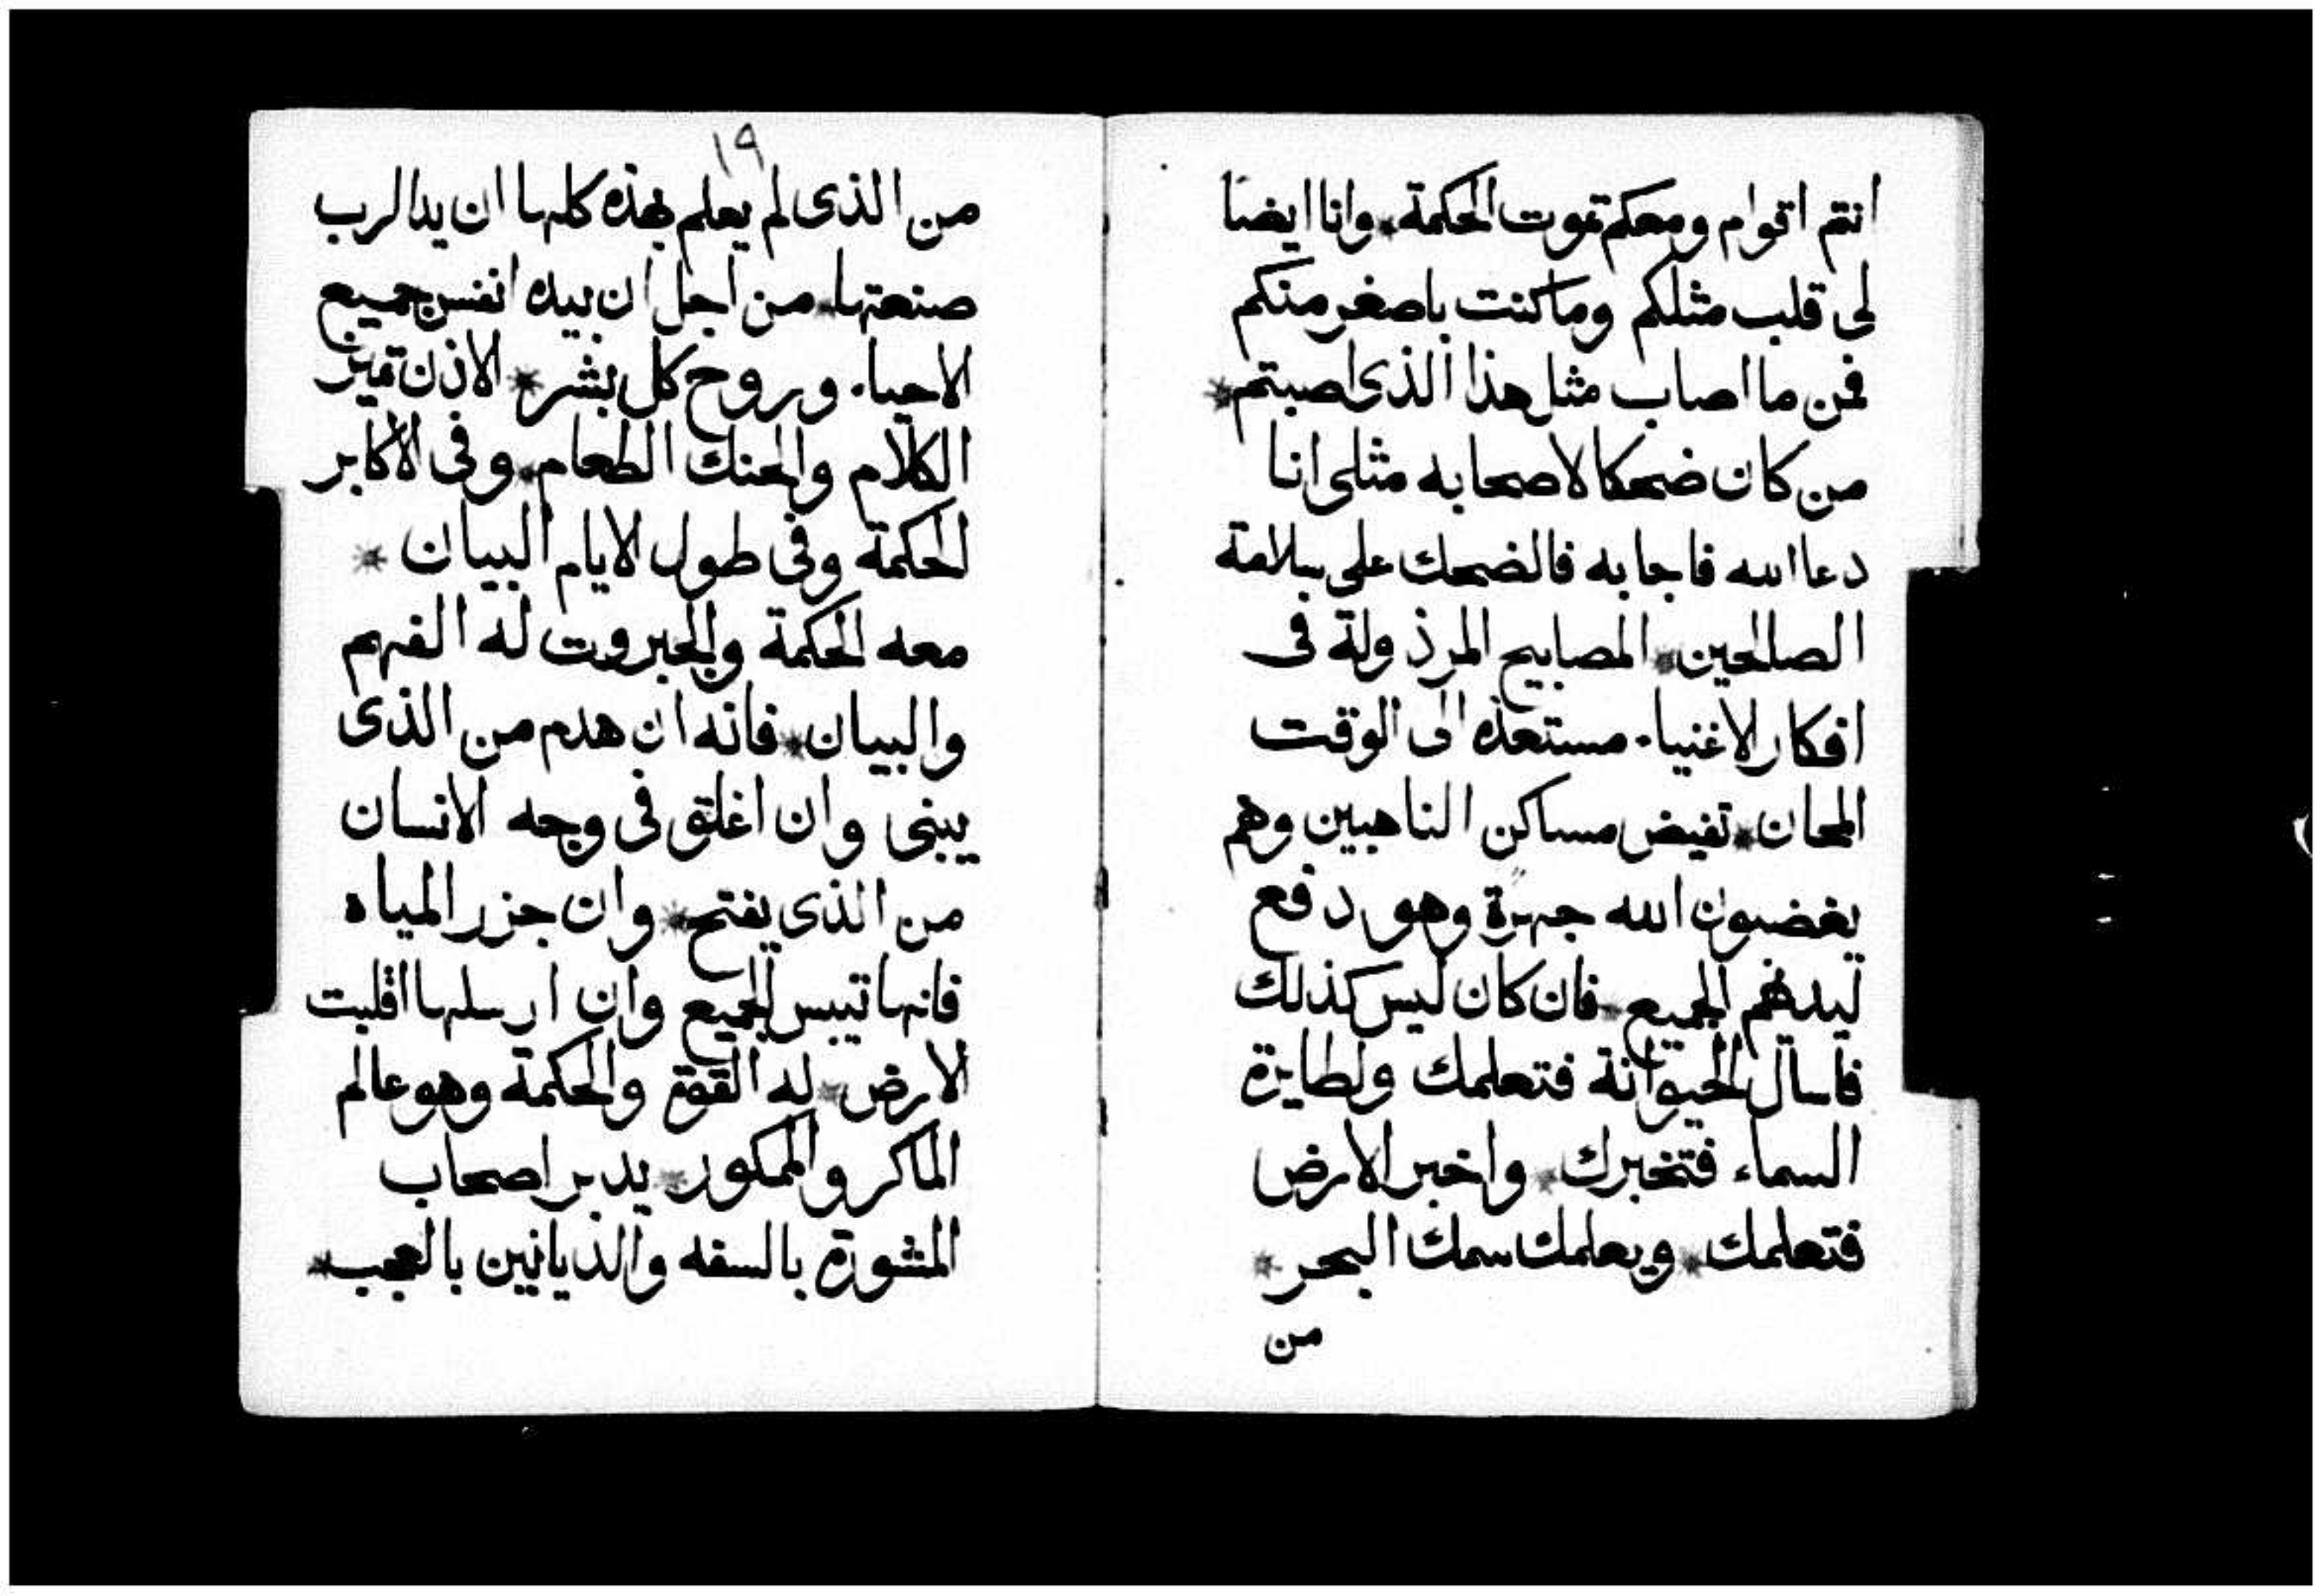 انتم اقوام ومعكم تموت الحكمة * وانا ايضا
لى قلب مثلكم وما كنت باصغر منكم
فمن ما اصاب مثل هذا الذى اصبتم *
من كان ضحكا لاصحابه مثلى انا
دعا الله فاجابه فالضحك على سلامة
الصالحين * المصابيح المرذولة فى
افكار الاغنياء. مستعذه الى الوقت
المحان * تفيض مساكن الناهبين وهم
يغضبون الله جهرة وهو دفع
ليديهم الجميع * فان كان ليس كذلك
فاسال الحيوانة فتعلمك ولطايرة
السماء فتخبرك * واخبر الارض
فتعلمك * ويعلمك سمك البحر *
من
١٩
من الذى لم يعلم بهذه كلها ان يد الرب
صنعتها * من اجل ان بيده انفس جميع
الاحياء. وروح كل بشر * الاذن تميز
الكلام والحنك الطعام * وفى الاكابر
الحكمة وفى طول الايام البيان *
معه الحكمة والجبروت له الفهم
والبيان * فانه ان هدم من الذى
يبنى وان اغلق فى وجه الانسان
من الذى يفتح * وان جزر المياه
فانها تيبس الجميع وان ارسلها اقلبت
الارض * له القوة والحكمة وهو عالم
الماكر والممكور * يدبر اصحاب
المشورة بالسفه والديانين بالعجب *